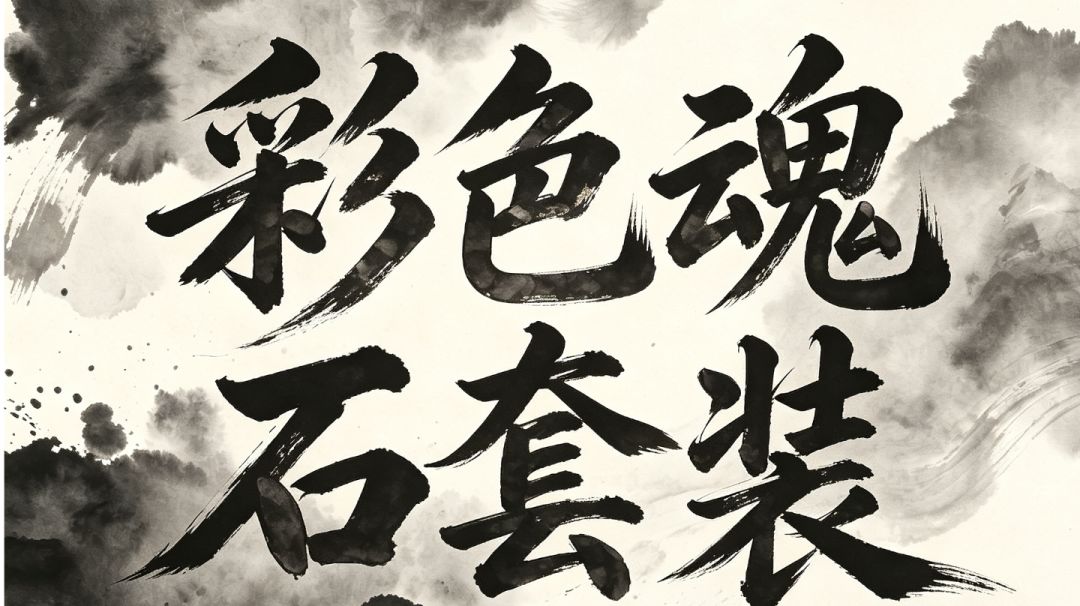 彩色魂
石套装